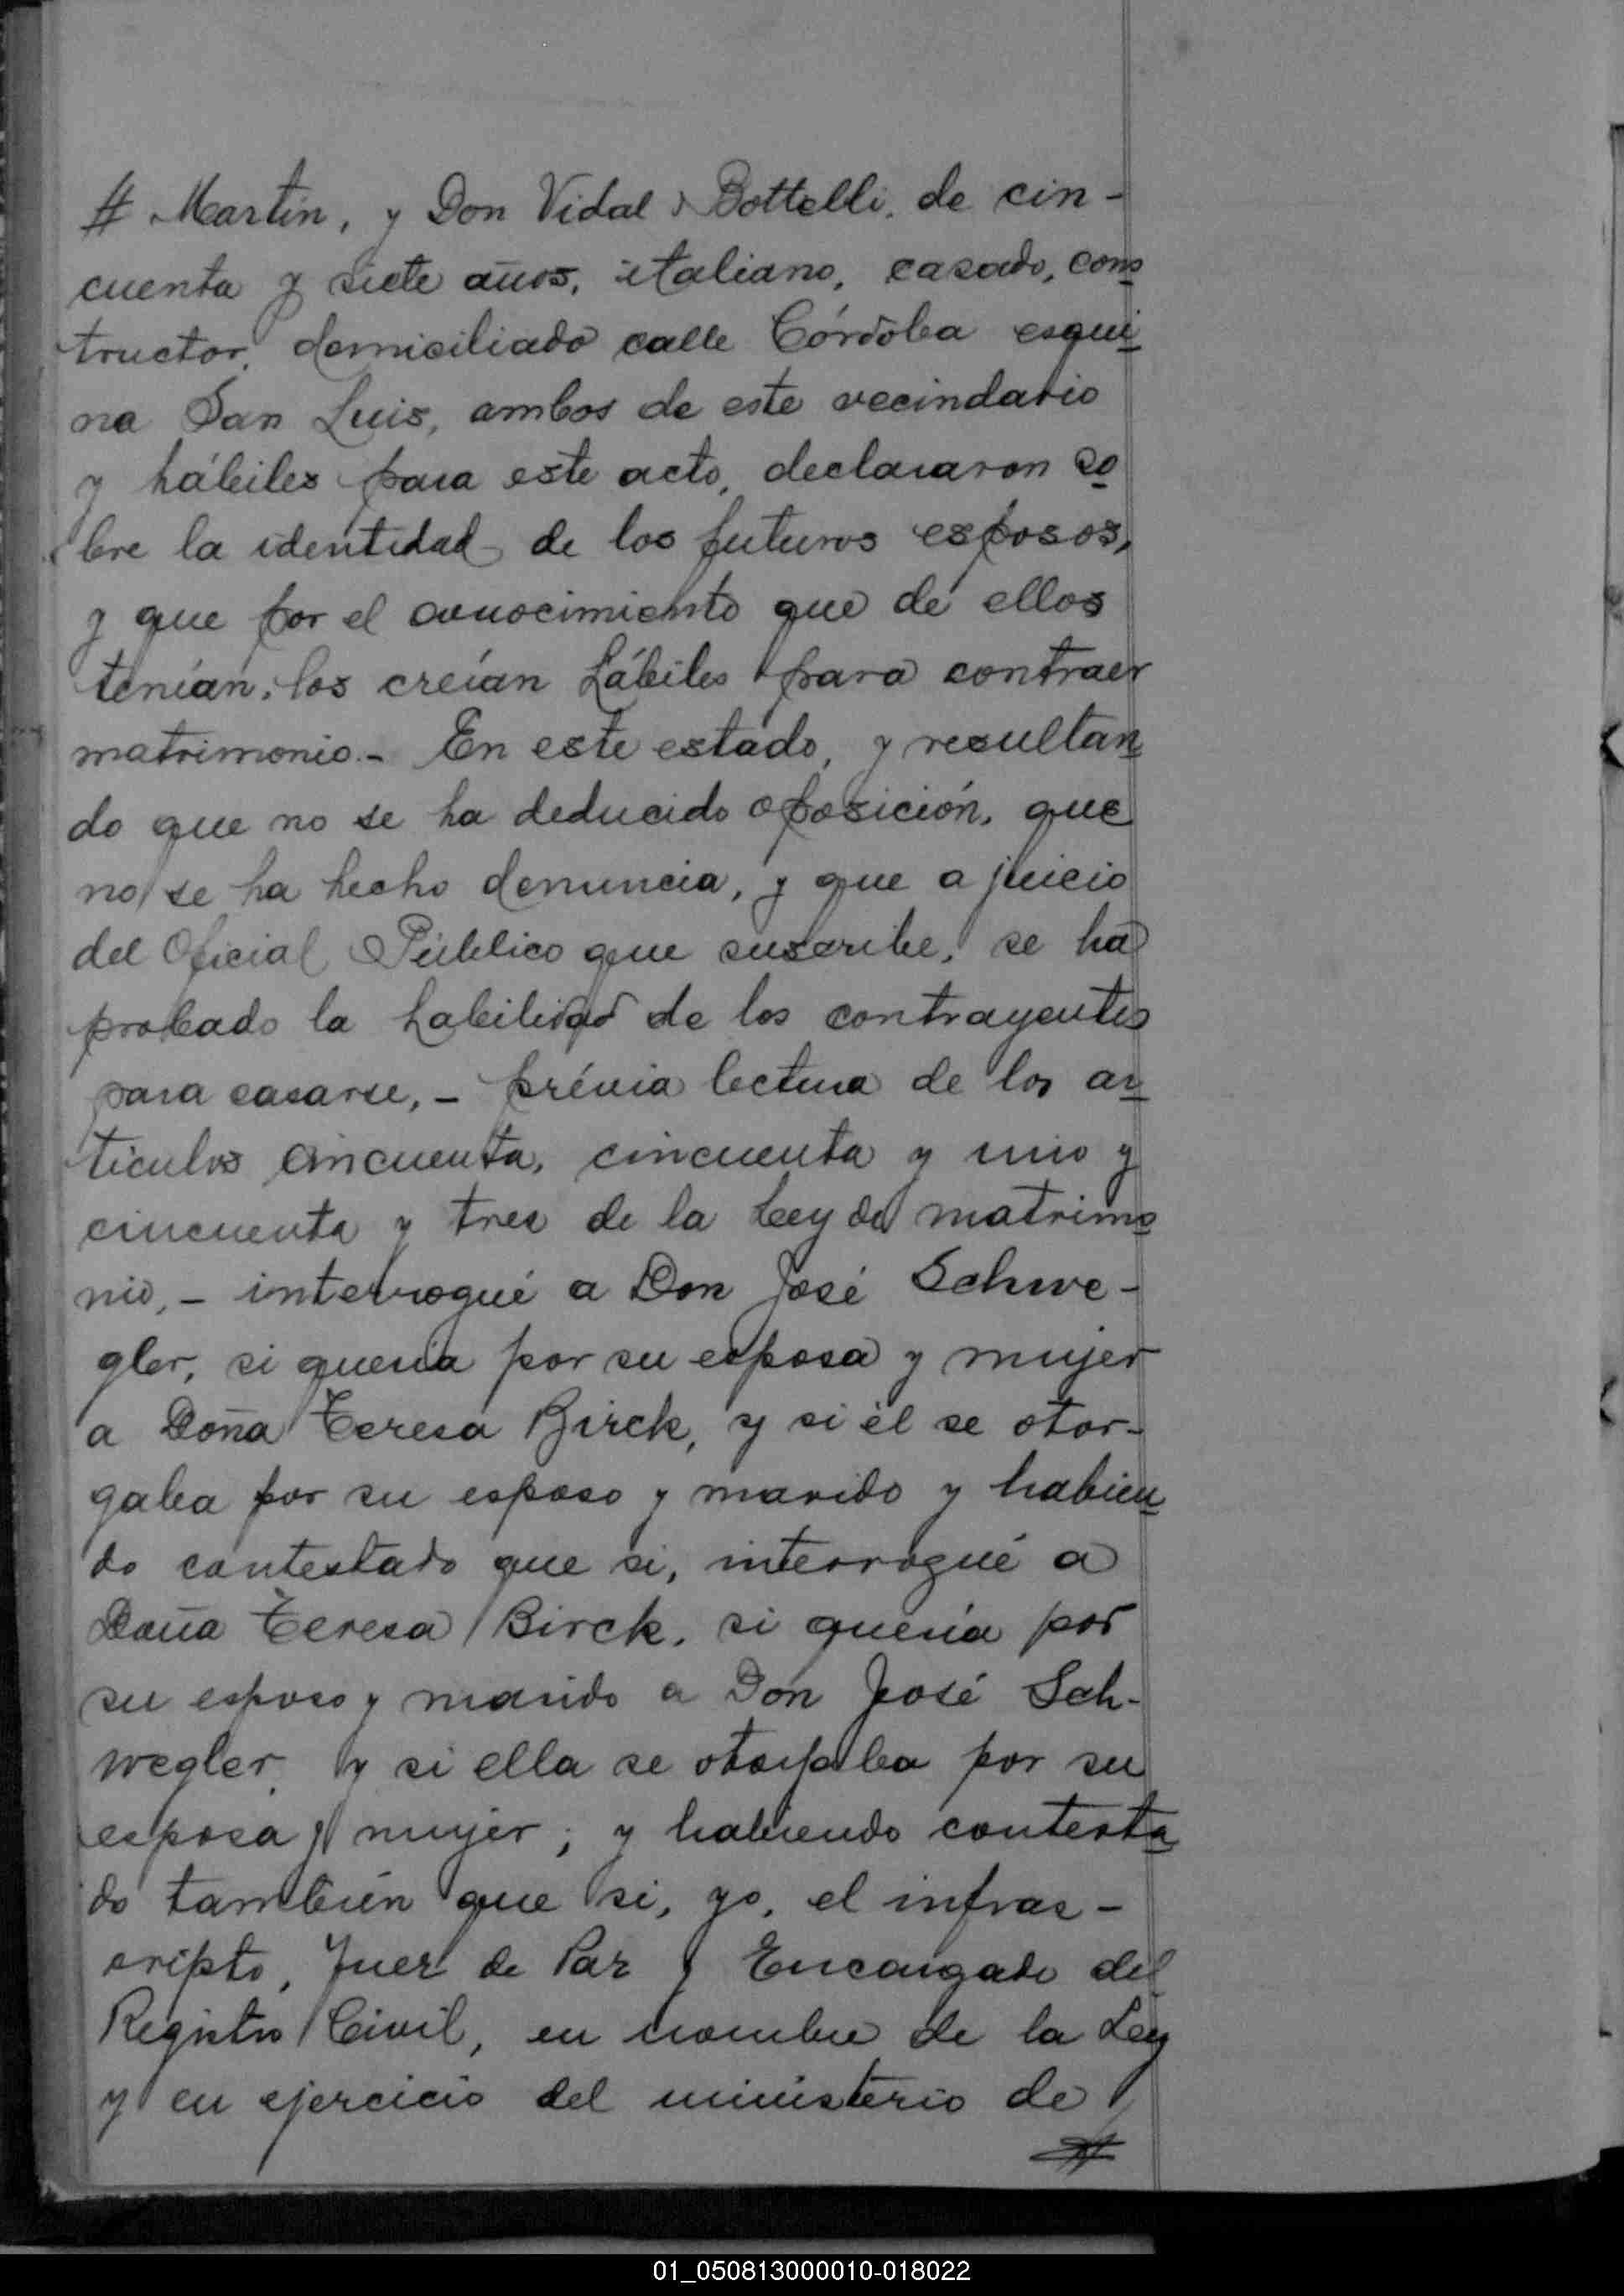 # Martín, y Don Vidal Bottelli, de cin-
cuenta y siete años, italiano, casado, cons
tructor, domiciliado calle Córdoba esqui
na San Luis, ambos de este vecindario
y hábiles para este acto, declararon so
bre la identidad de los futuros esposos,
y que por el conocimiento que de ellos
tenían, los creían hábiles para contraer
matrimonio.- En este estado, y resultan
do que no se ha deducido oposición, que
no se ha hecho denuncia, y que a juicio
del Oficial Público que suscribe, se ha
probado la habilidad de los contrayentes
para casarse, - prévia lectura de los ar
tículos cincuenta, cincuenta y uno y
cincuenta y tres de la Ley de matrimo
nio, - interrogué a Don José Schwe-
gler, si quería por su esposa y mujer
a Doña Teresa Birck, y si él se otor-
gaba por su esposo y marido y habien
do contestado que si, interrogué a
Doña Teresa Birck, si quería por
su esposo y marido a Don José Sch-
wegler, y si ella se otorgaba por su
esposa y mujer; y habiendo contesta
do también que si, yo, el infras-
cripto, Juez de Paz y Encargado del
Registro Civil, en nombre de la Ley
y en ejercicio del ministerio de
#
01_050813000010-018022